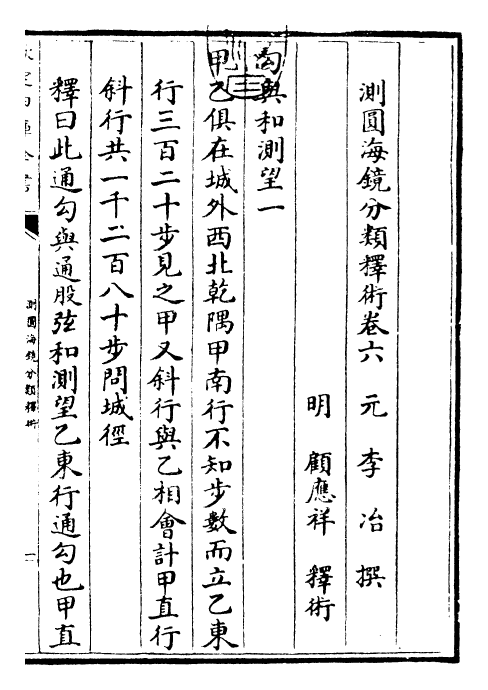 測圓海鏡分類釋術卷六 元 李冶 撰
明 顧應祥 釋術
勾與和測望一
甲乙俱在城外西北乾隅甲南行不知步數而立乙東
行三百二十步見之甲又斜行與乙相會計甲直行
斜行共一千二百八十步問城徑
釋曰此通勾與通股弦和測望乙東行通勾也甲直
測圓海鏡分類釋術
一